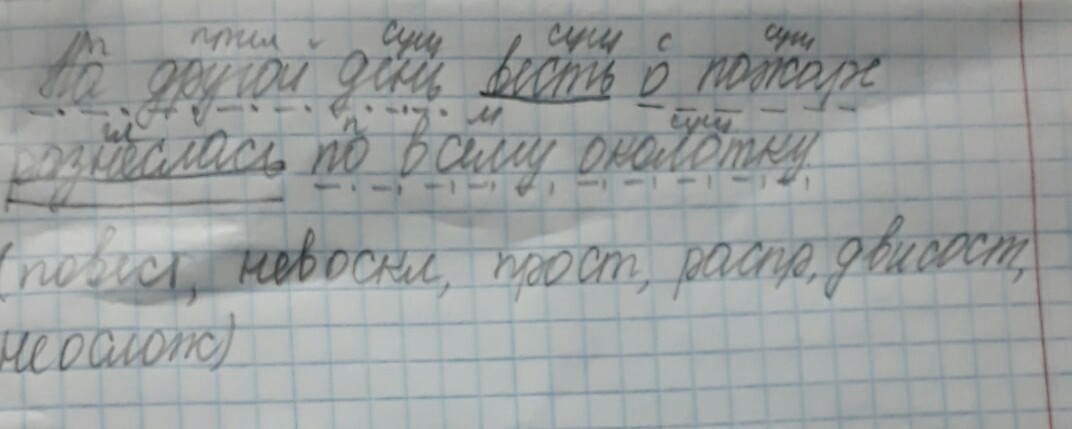 п прил сущ сущ с сущ
На другой день весть о пожаре
гл п м сущ
разнеслась по всему околотку.
(повест, невоскл, прост, распр, двусост,
неослож)